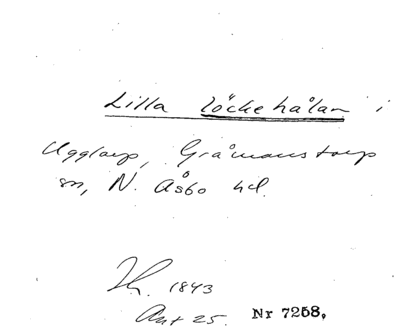 Lilla löckehålan i
Ugglarp, Gråmanstorp
sn, N. Åsbo hd.
Th. 1843
Ant 25. Nr 7258.